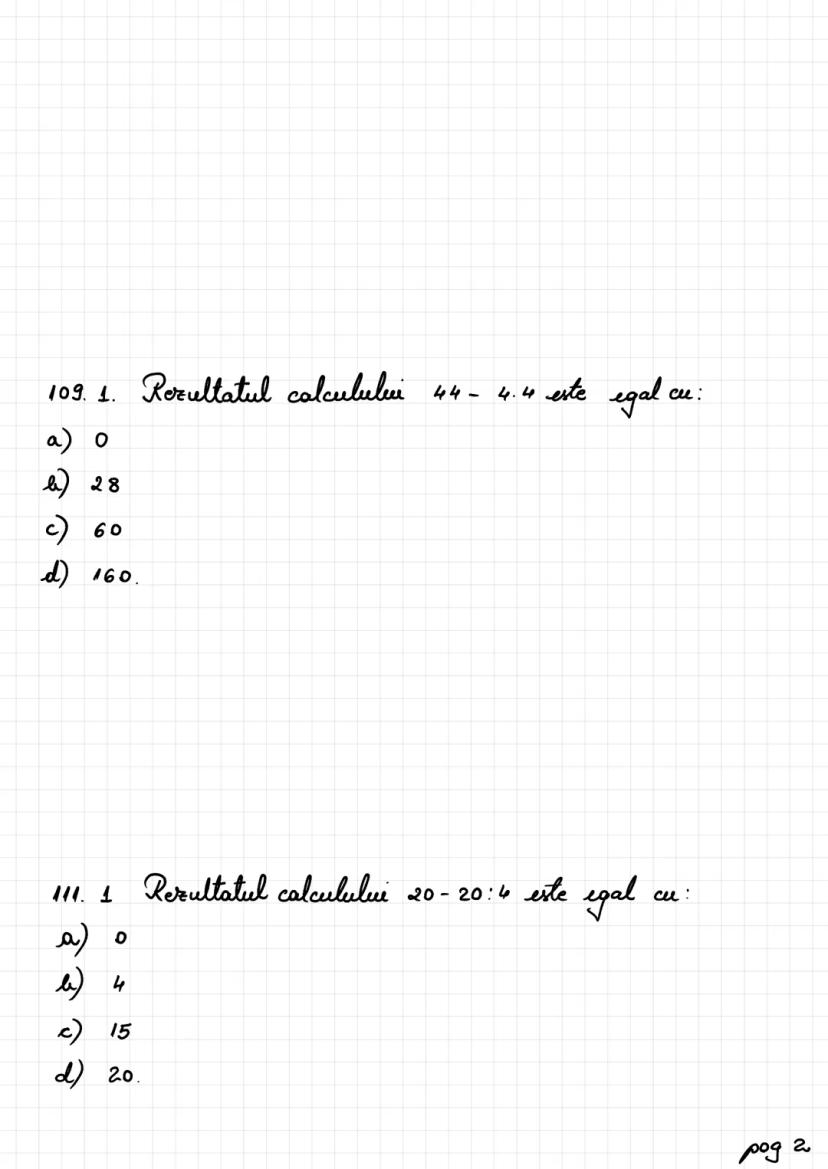 109. 1. Rezultatul calculului 44 - 4.4 este egal cu:
a) 0
b) 28
c) 60
d) 160.
111. 1 Rezultatul calculului 20 - 20:4 este egal cu:
a) 0
b) 4
c) 15
d) 20.
pag 2